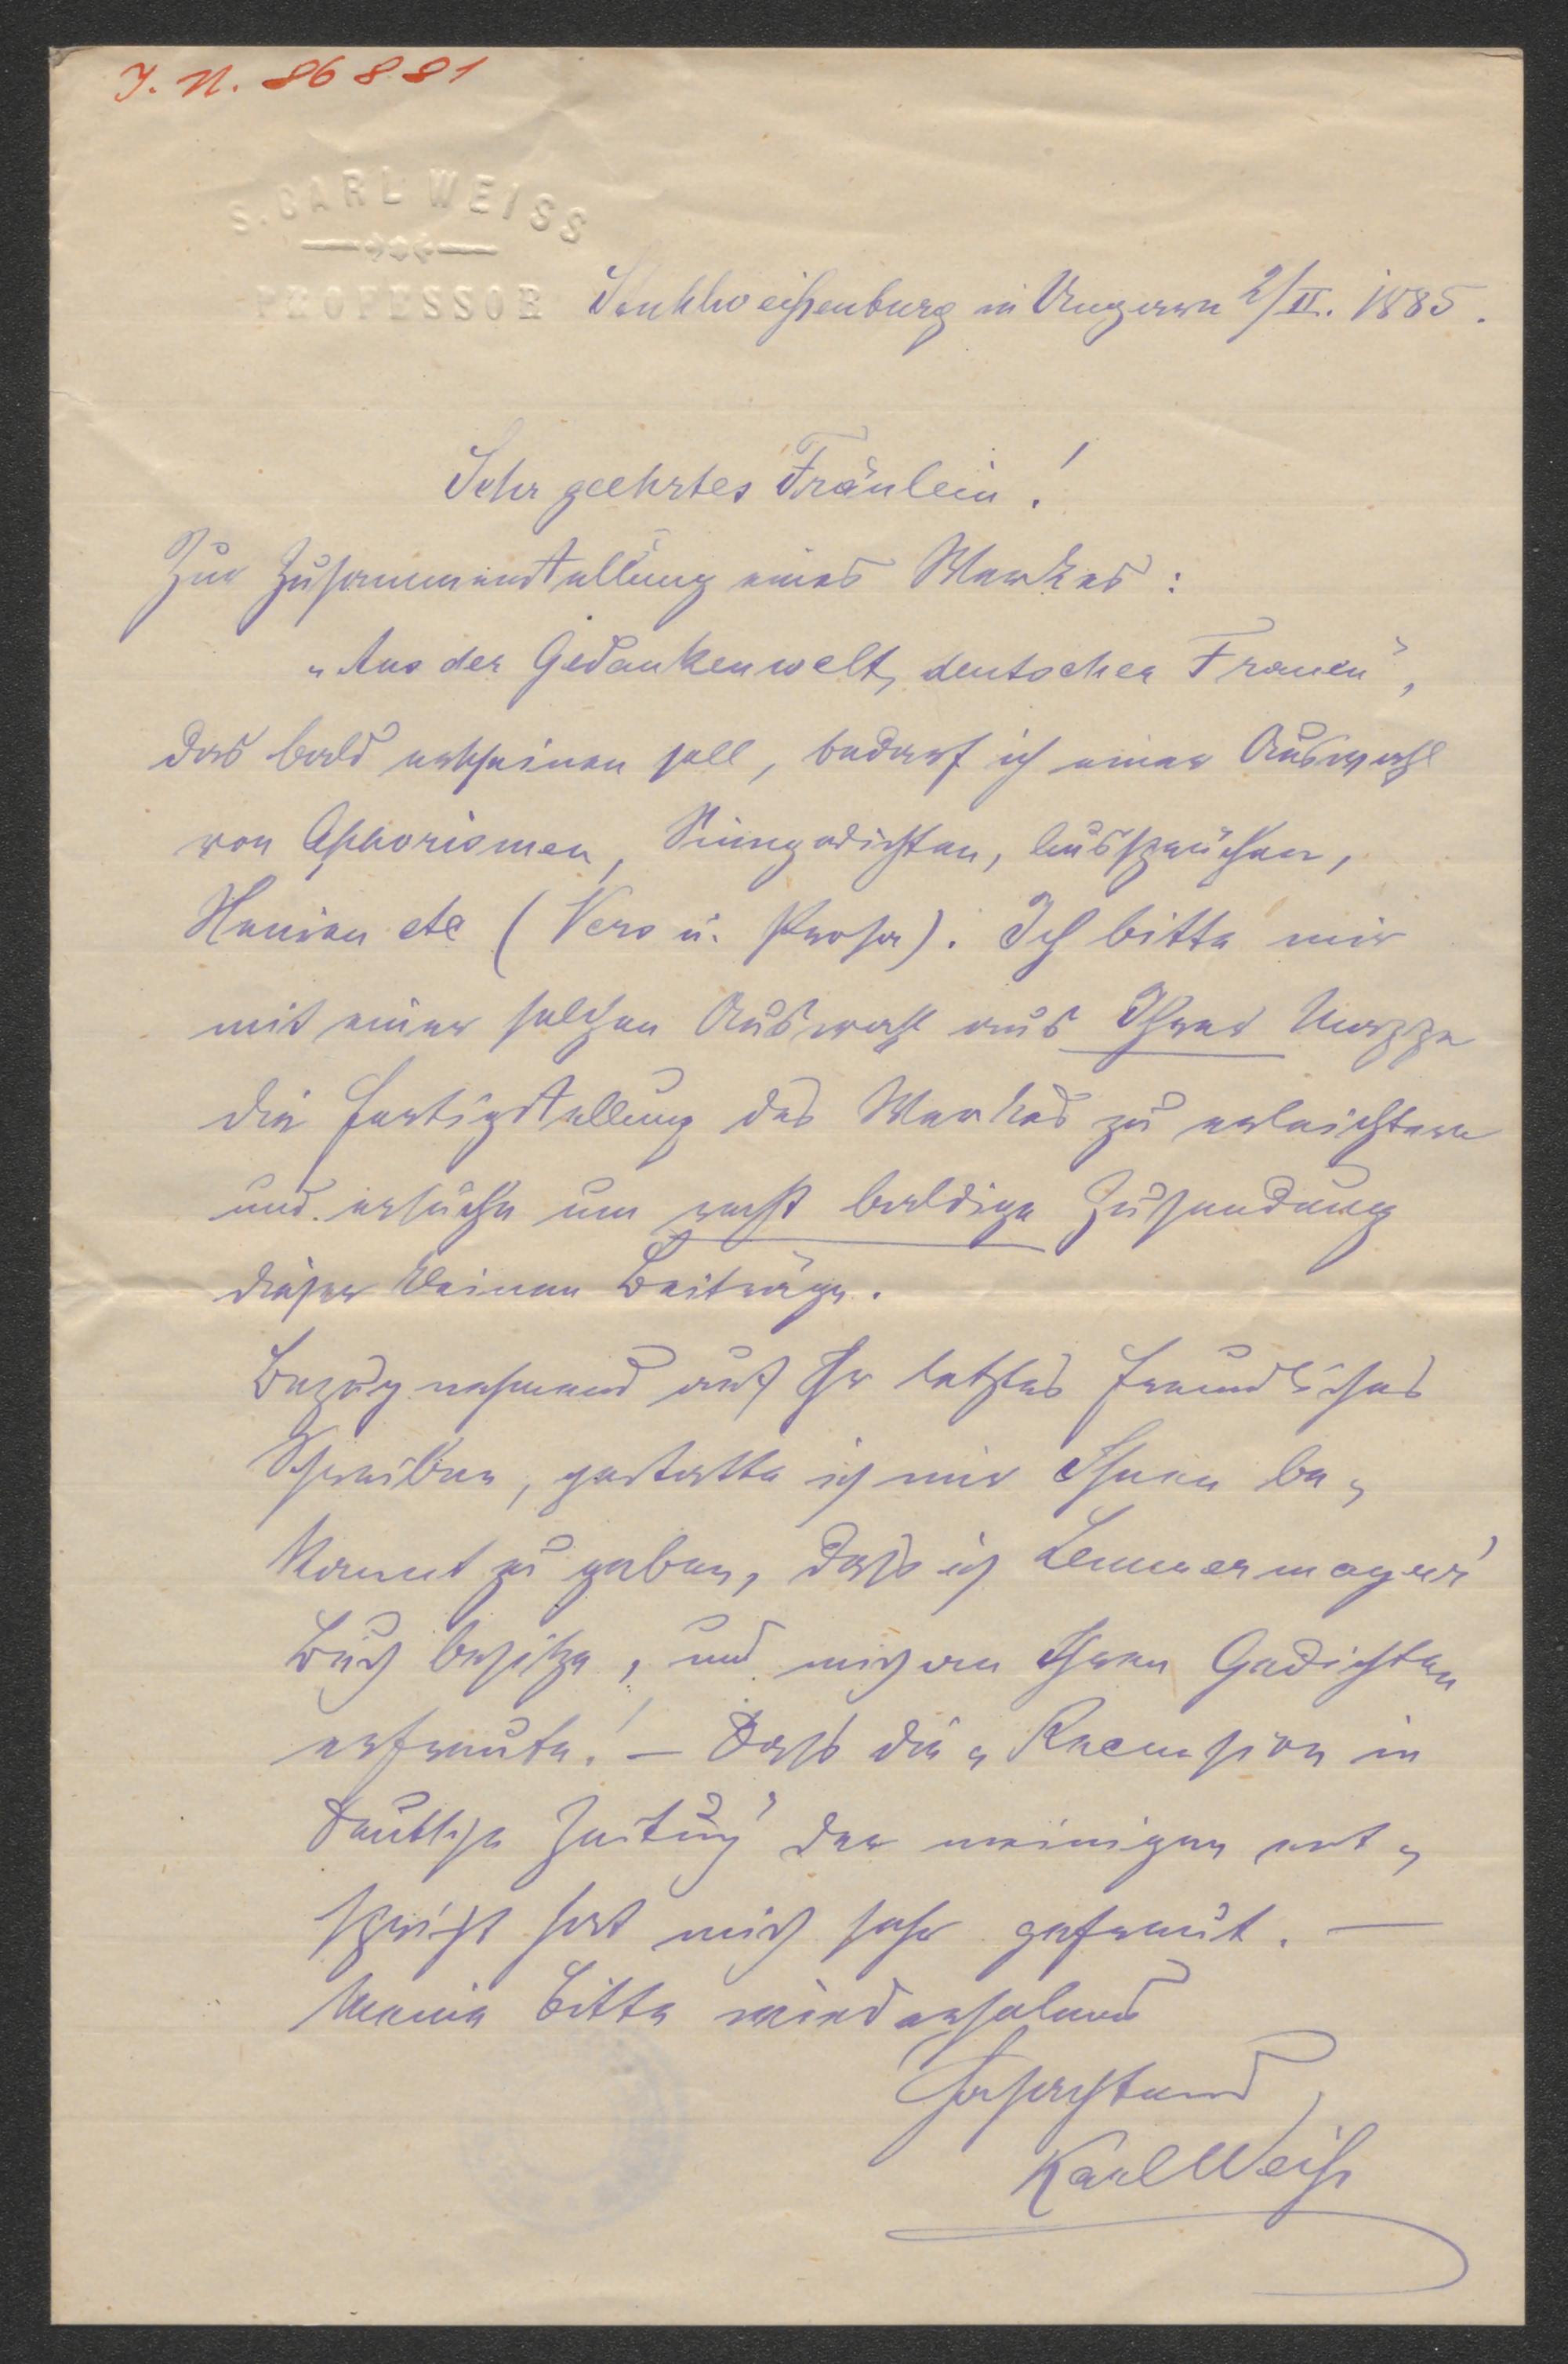 J. N. 86881
S. CARL WEISS
PROFESSOR
Stuhlweißenburg in Ungarn 2/II. 1885.
Sehr geehrtes Fräulein!
Zur Zusammenstellung eines Werkes:
„Aus der Gedankenwelt deutscher Frauen",
das bald erscheinen soll, bedarf ich einer Auswahl
von Aphorismen, Sinngedichten, Aussprüchen,
Xenien etc (Vers u. Prosa). Ich bitte mir
mit einer solchen Auswahl aus Ihrer Mappe
die Fertigstellung des Werkes zu erleichtern
und ersuche um recht baldige Zusendung
dieser kleinen Beiträge.
Bezugnehmend auf Ihr letztes freundliches
Schreiben, gestatte ich mir Ihnen be-
kannt zu geben, dass ich Lemmermayer's
Buch besitze, und mich an Ihren Gedichten
erfreute! — Dass die „Recension in
Deutsche Zeitung" der meinigen ent-
spricht hat mich sehr gefreut. —
Meine Bitte wiederholend
Hochachtend
Karl Weiß